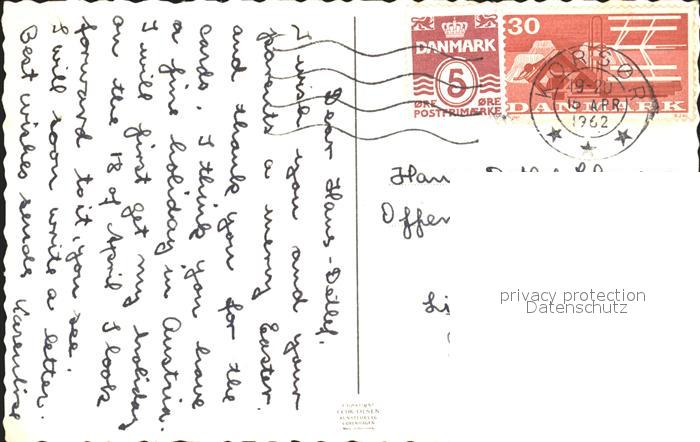 Dear Hans-Detlef.
I wish you and your
parents a merry Easter.
and thank you for the
cards. I think you have
a fine holiday in Austria.
I will first get my holiday
on the 18 of April I look
forward to it, you see.
I will soon write a letter.
Best wishes sends Karenlise
DANMARK
5
ØRE ØRE
POSTFRIMÆRKE
30
DANMARK
KORSØR
19-20
15 APR
1962
Han
Offen
privacy protection
Datenschutz